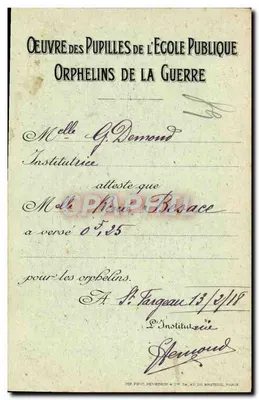 ŒUVRE DES PUPILLES DE L'ECOLE PUBLIQUE
ORPHELINS DE LA GUERRE
Melle G. Demond
Institutrice
atteste que
Melle René Besace
a versé 0f,25
pour les orphelins.
A St Fargeau 13/2/18
L'Institutrice
GDemond
CARPOSTAL